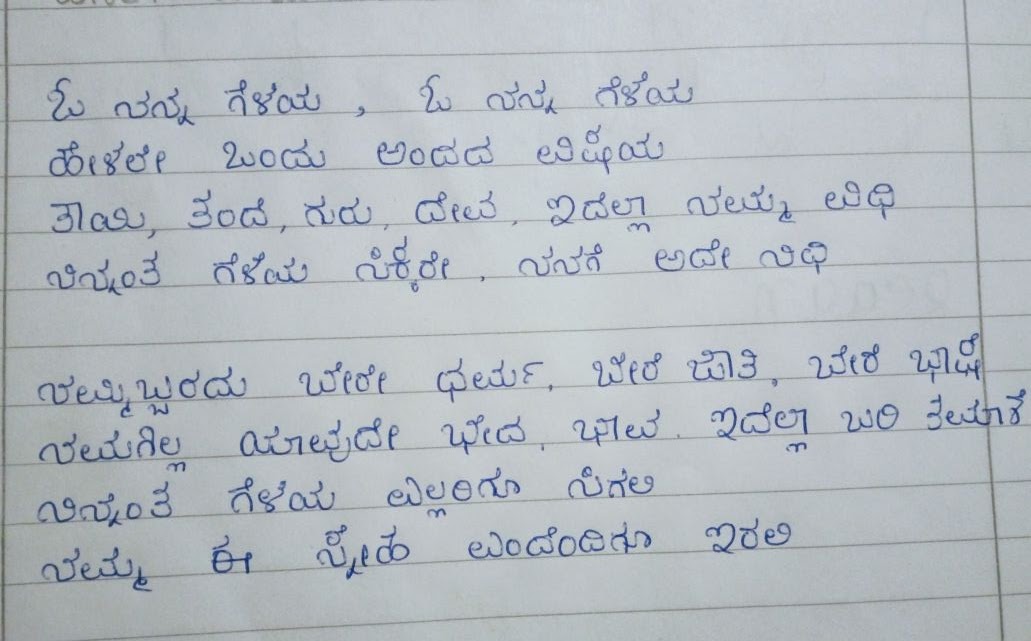 ಓ ನನ್ನ ಗೆಳೆಯ, ಓ ನನ್ನ ಗೆಳೆಯ
ಹೇಳಲೇ ಒಂದು ಅಂದದ ವಿಷಯ
ತಾಯಿ, ತಂದೆ, ಗುರು, ದೇವ, ಇದೆಲ್ಲಾ ನಮ್ಮ ವಿಧಿ
ನಿನ್ನಂತ ಗೆಳೆಯ ಸಿಕ್ಕರೇ, ನನಗೆ ಅದೇ ನಿಧಿ
ನಮ್ಮಿಬ್ಬರದು ಬೇರೇ ಧರ್ಮ, ಬೇರೆ ಜಾತಿ, ಬೇರೆ ಭಾಷೆ
ನಮಗಿಲ್ಲ ಯಾವುದೇ ಭೇದ, ಭಾವ, ಇದೆಲ್ಲಾ ಬರಿ ತಮಾಶೆ
ನಿನ್ನಂತ ಗೆಳೆಯ ಎಲ್ಲರಿಗೂ ಸಿಗಲಿ
ನಮ್ಮ ಈ ಸ್ನೇಹ ಎಂದೆಂದಿಗೂ ಇರಲಿ